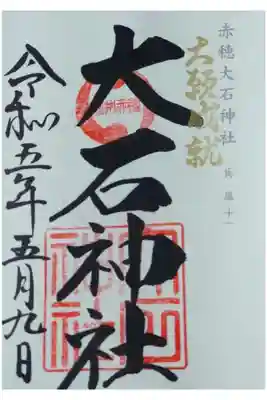 赤穂大石神社
大願成就
大石神社
令和五年五月九日